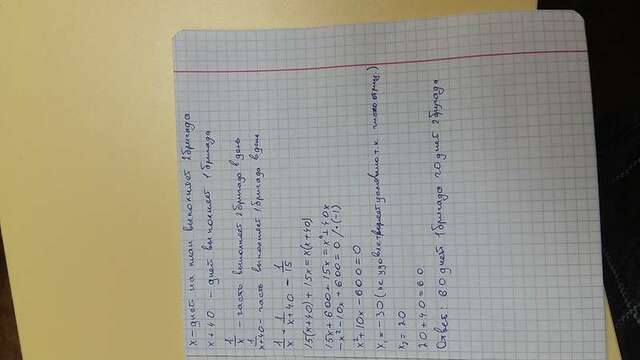 x - дней на план выполняет 2бригада
x+40 - дней выполняет 1бригада
1/x - часть выполняет 2бригада в день
1/x+40 - часть выполняет 1бригада в день
1/x + 1/x+40 = 1/15
15(x+40) + 15x = x(x+40)
15x + 600 + 15x = x²+40x
-x²-10x + 600 = 0 /·(-1)
x²+10x-600=0
x₁ = -30 (не удовлетворяет условию т.к число отриц.)
x₂ = 20
20+40=60
Ответ: 60 дней 1бригада 20 дней 2бригада